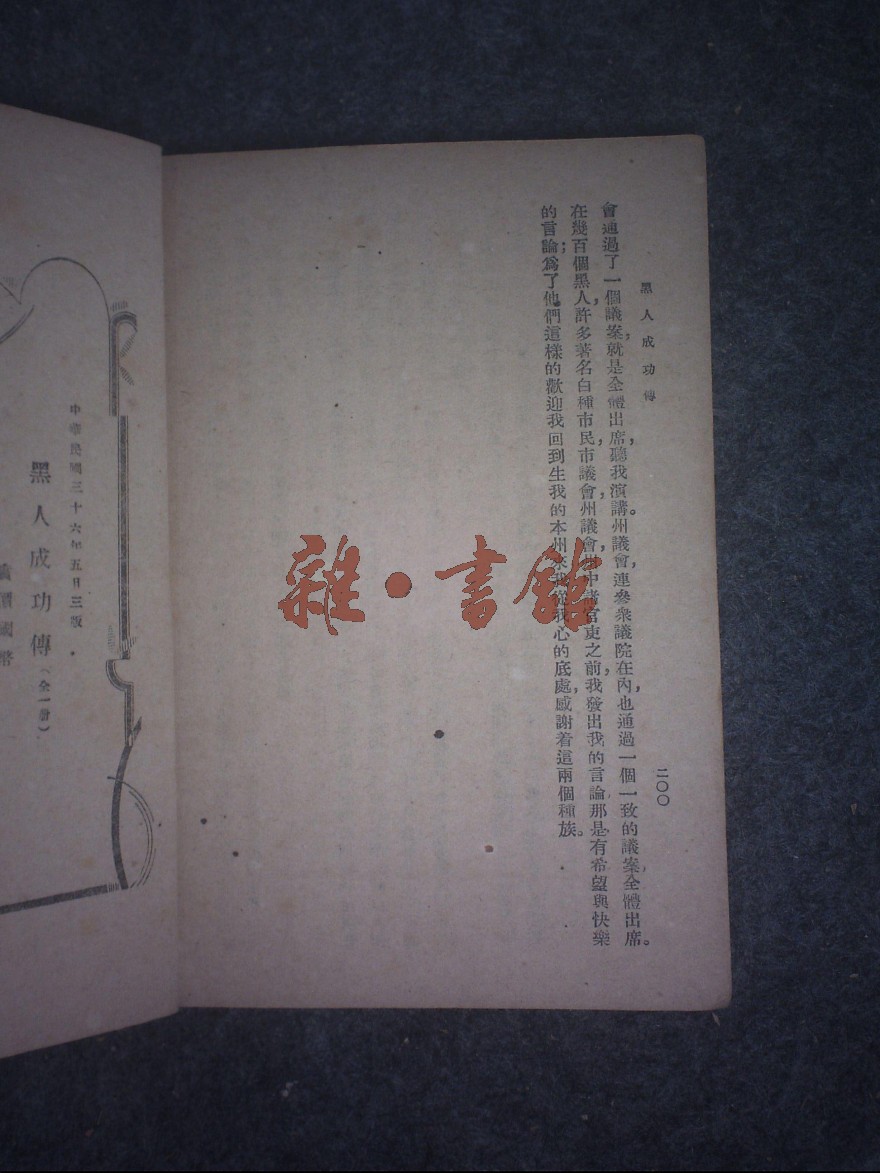 黑人成功傳
會通過了一個議案，就是全體出席，聽我演講。州議會，連參衆議院在內，也通過一個一致的議案，全體出席。
在幾百個黑人，許多著名白種市民，市議會，州議會，州中諸官吏之前，我發出我的言論，那是有希望與快樂
的言論；爲了他們這樣的歡迎我回到生我的本州來，我從我心的底處，感謝着這兩個種族。
二〇〇
雜·書館
中華民國三十六年五月三版
黑人成功傳（全一册）
價國幣